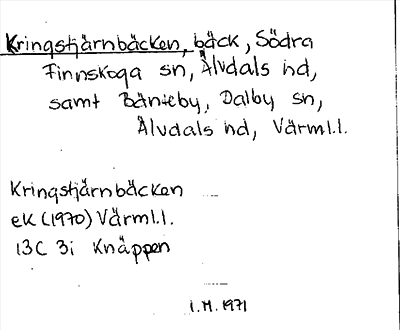 Kringstjärnbäcken, bäck, Södra
Finnskoga sn, Älvdals hd,
samt Bänteby, Dalby sn,
Älvdals hd, Värml.l.
Kringstjärnbäcken
eK (1970) Värml.l.
13C 3i Knäppen
I.M. 1971